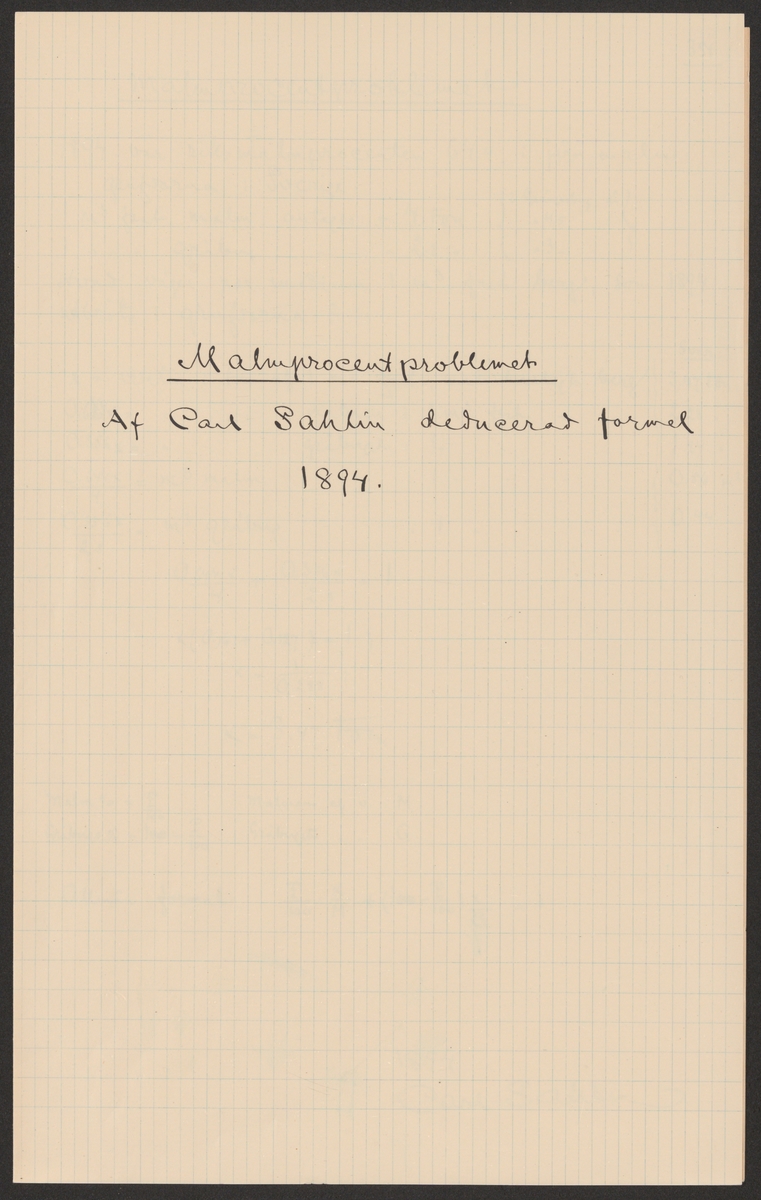 Malmprocentproblemet
Af Carl Sahlin deducerad formel
1894.